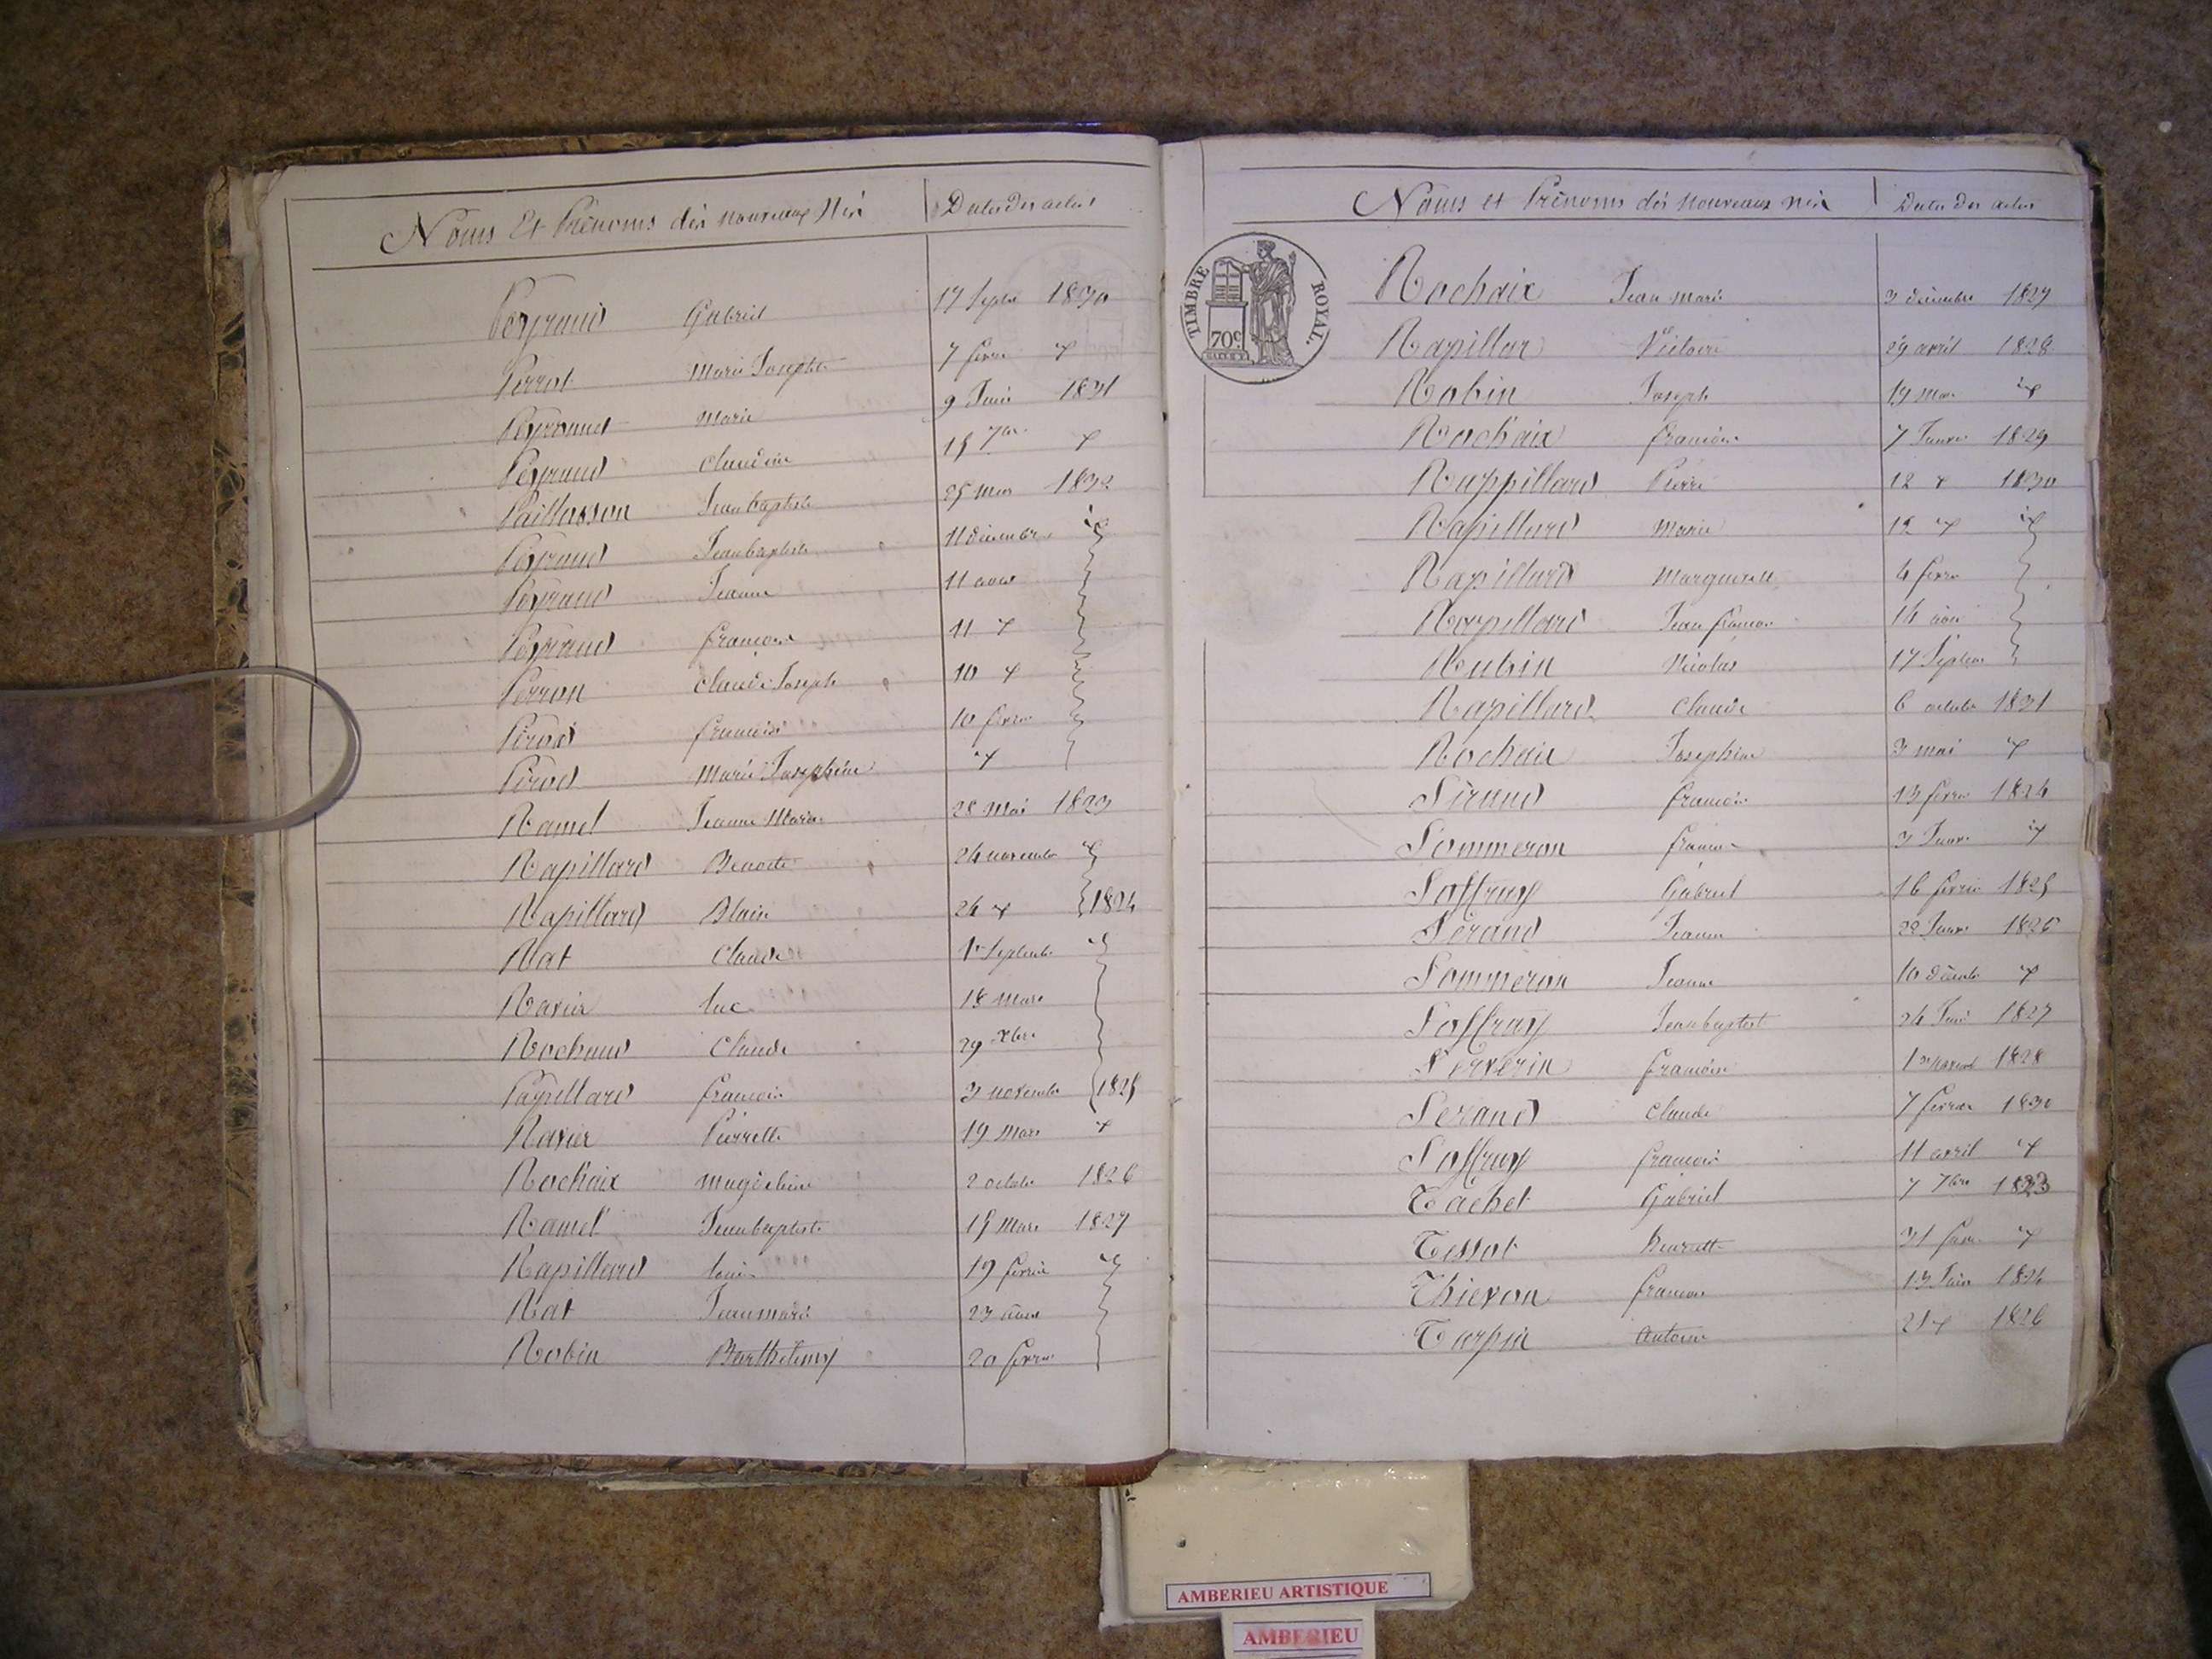 Noms Et Prénoms dès nouveaux Nés Dates Des actes
Peyraud Gabriel 17 Septbre 1830
Perrot Marie Josephte 7 fevrier
Peyraud Marie 9 Juin 1831
Peyraud Claudine 15 7bre
Paillasson Jean baptiste 25 Mars 1832
Peyraud Jean baptiste 11 decembre
Peyraud Jeanne 11 aout
Peyraud francoise 11
Perron Claude Joseph 10
Pirod francoise 10 fevrier
Pirod Marie Josephine
Ramel Jeanne Marie 28 Mai 1823
Rapillard Benoite 24 novembre
Rapillard Blain 24 1824
Rat Claude 1er Septembre
Ravier luc 18 Mars
Rochaud Claude 29 Xbre
Papillard francois 3 novembre 1825
Ravier Pierrette 19 Mars
Rochaix magdeleine 2 octobre 1826
Ramel Jean baptiste 15 Mars 1827
Rapillard louis 19 fevrier
Rat Jean marie 23 aout
Robin Barthelemy 20 fevrier
Noms et Prénoms dès nouveaux nés Dates Des actes
TIMBRE ROYAL.
70c
Rochaix Jean marie 3 decembre 1827
Rapillar Victoire 29 avril 1828
Robin Joseph 19 Mars
Rochaix francoise 7 Janvier 1829
Rappillard Pierre 12 1830
Rapillard Marie 12
Rapillard Marguerite 4 fevrier
Rapillard Jean francois 14 aout
Rubin Nicolas 17 Septembre
Rapillard Claude 6 octobre 1831
Rochaix Josephine 3 mai
Siraud francois 13 fevrier 1824
Sommeron 3 Janvier
Soffray Gabriel 16 fevrier 1825
Seraud Jeanne 22 Janvier 1826
Sommeron Jeanne 10 decembre
Soffray Jean baptiste 24 1827
Serverin francoise 1828
Seraud Claude 7 fevrier 1830
Soffray francois 11 avril
Tachet Gabriel 7 7bre 1823
Tissot 31
Thievon francois 13 Juin 1824
Tarpin antoine 21 1826
AMBERIEU ARTISTIQUE
AMBERIEU